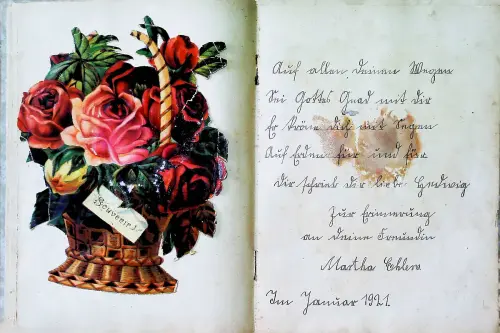 Souvenir
Auf allen deinen Wegen
Sei Gottes Gnad mit dir
Er kröne dich mit Segen
Auf Erden für und für
Dir schrieb der liebe Hedwig
Zur Erinnerung
an deine Freundin
Martha Ehlers
Im Januar 1921.